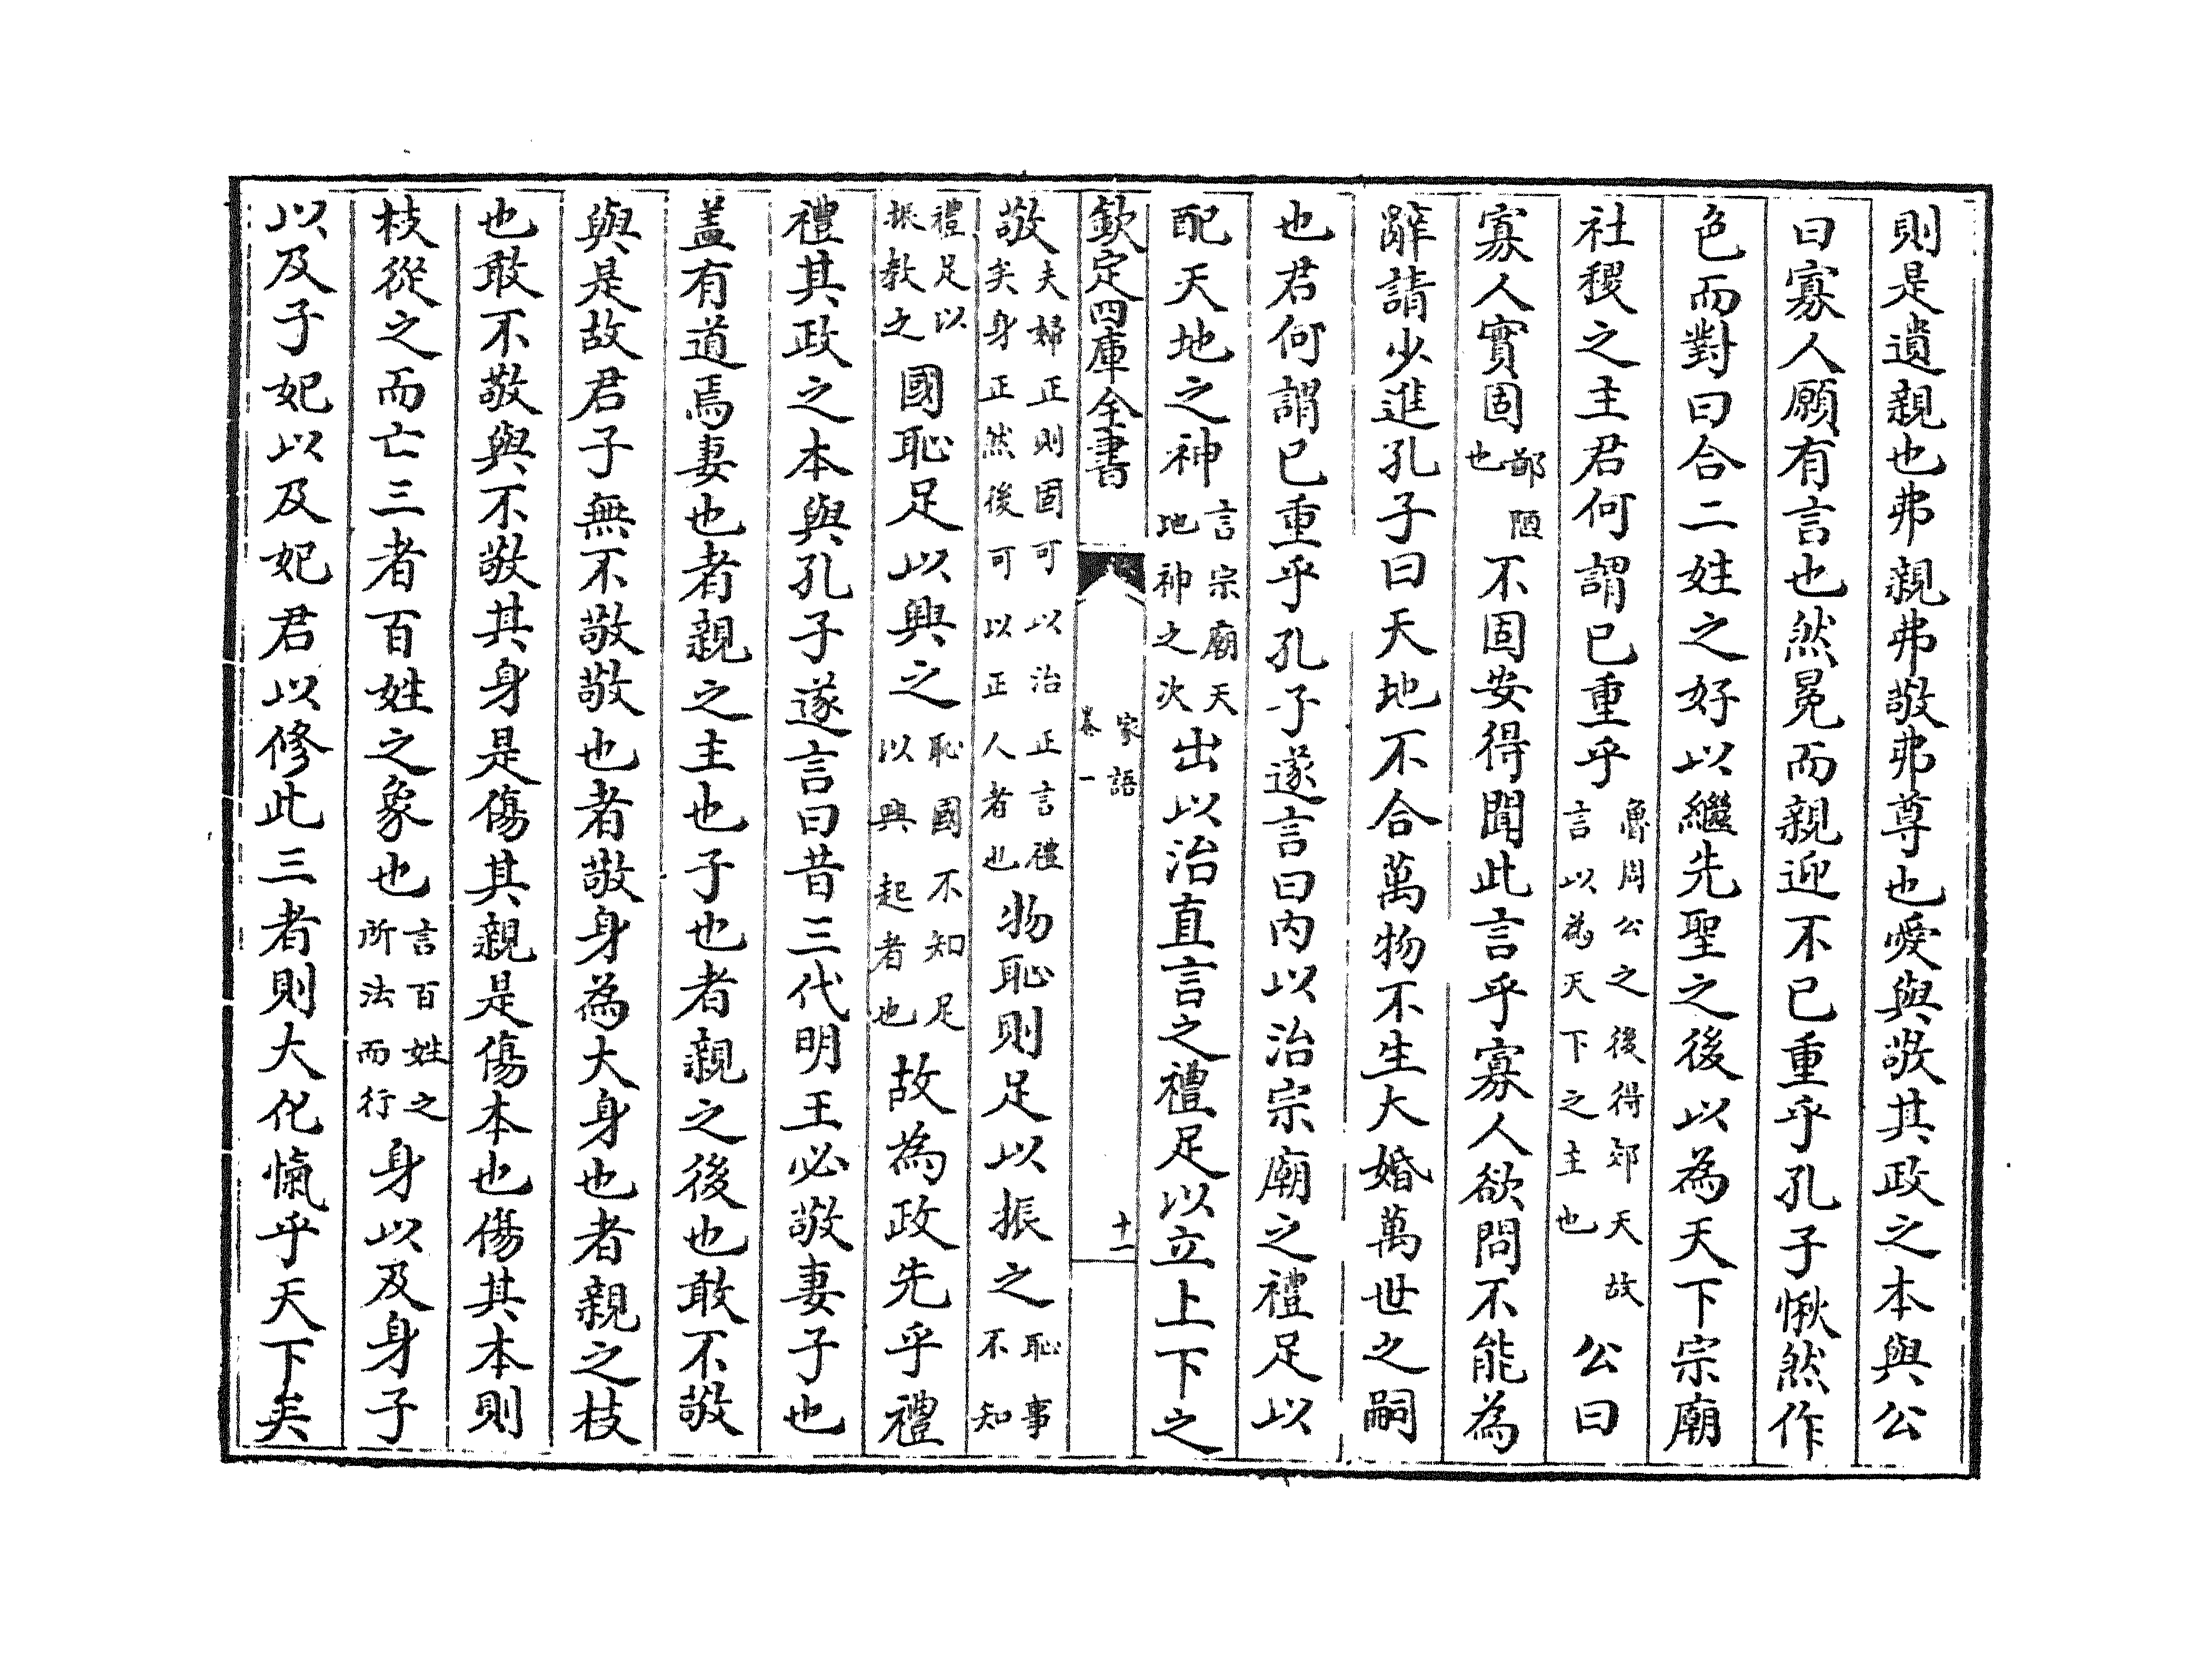 則是遺親也弗親弗敬弗尊也愛與敬其政之本與公
曰寡人願有言也然冕而親迎不已重乎孔子愀然作
色而對曰合二姓之好以繼先聖之後以為天下宗廟
社稷之主君何謂已重乎魯周公之後得郊天故言以為天下之主也公曰
寡人實固鄙陋也不固安得聞此言乎寡人欲問不能為
辭請少進孔子曰天地不合萬物不生大婚萬世之嗣
也君何謂已重乎孔子遂言曰内以治宗廟之禮足以
配天地之神言宗廟天地神之次出以治直言之禮足以立上下之
欽定四庫全書 家語卷一 十一
敬夫婦正則固可以治正言禮矣身正然後可以正人者也物恥則足以振之恥事不知
禮足以振教之國恥足以興之恥國不知足以興起者也故為政先乎禮
禮其政之本與孔子遂言曰昔三代明王必敬妻子也
盖有道焉妻也者親之主也子也者親之後也敢不敬
與是故君子無不敬敬也者敬身為大身也者親之枝
也敢不敬與不敬其身是傷其親是傷本也傷其本則
枝從之而亡三者百姓之象也言百姓之所法而行身以及身子
以及子妃以及妃君以修此三者則大化愾乎天下矣